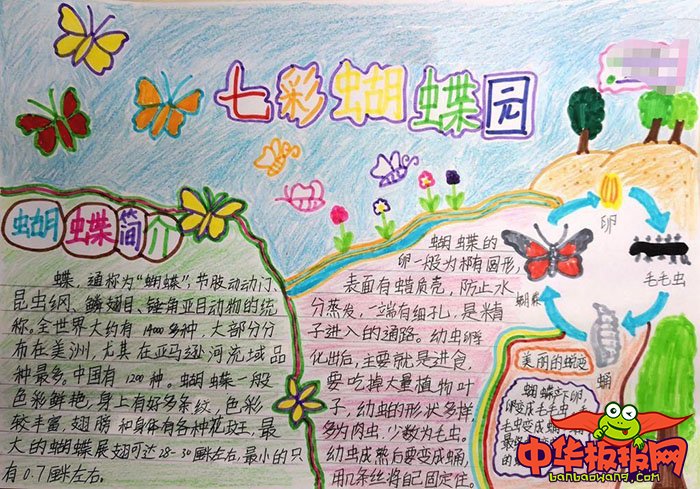 七彩蝴蝶园
蝴蝶简介
蝶，通称为“蝴蝶”，节肢动动门、
昆虫纲、鳞翅目、锤角亚目动物的统
称。全世界大约有14000多种，大部分分
布在美洲，尤其在亚马逊河流域品
种最多。中国有1200种。蝴蝶一般
色彩鲜艳，身上有好多条纹，色彩
较丰富，翅膀和身体有各种花斑。最
大的蝴蝶展翅可达28-30厘米左右，最小的只
有0.7厘米左右。
蝴蝶的
卵一般为椭有圆形，
表面有蜡质壳，防止水
分蒸发，一端有细孔，是精
子进入的通路。幼虫孵
化出后，主要就是进食，
要吃掉大量植物叶
子，幼虫的形状多样，
多为肉虫，少数为毛虫。
幼虫成熟后要变成蛹，
用几条丝将自己固定住。
卵
毛毛虫
蛹
美丽的蜕变
蝴蝶产下卵，
卵变成毛毛虫，
毛虫变成
中华板报网
banbaowang.com